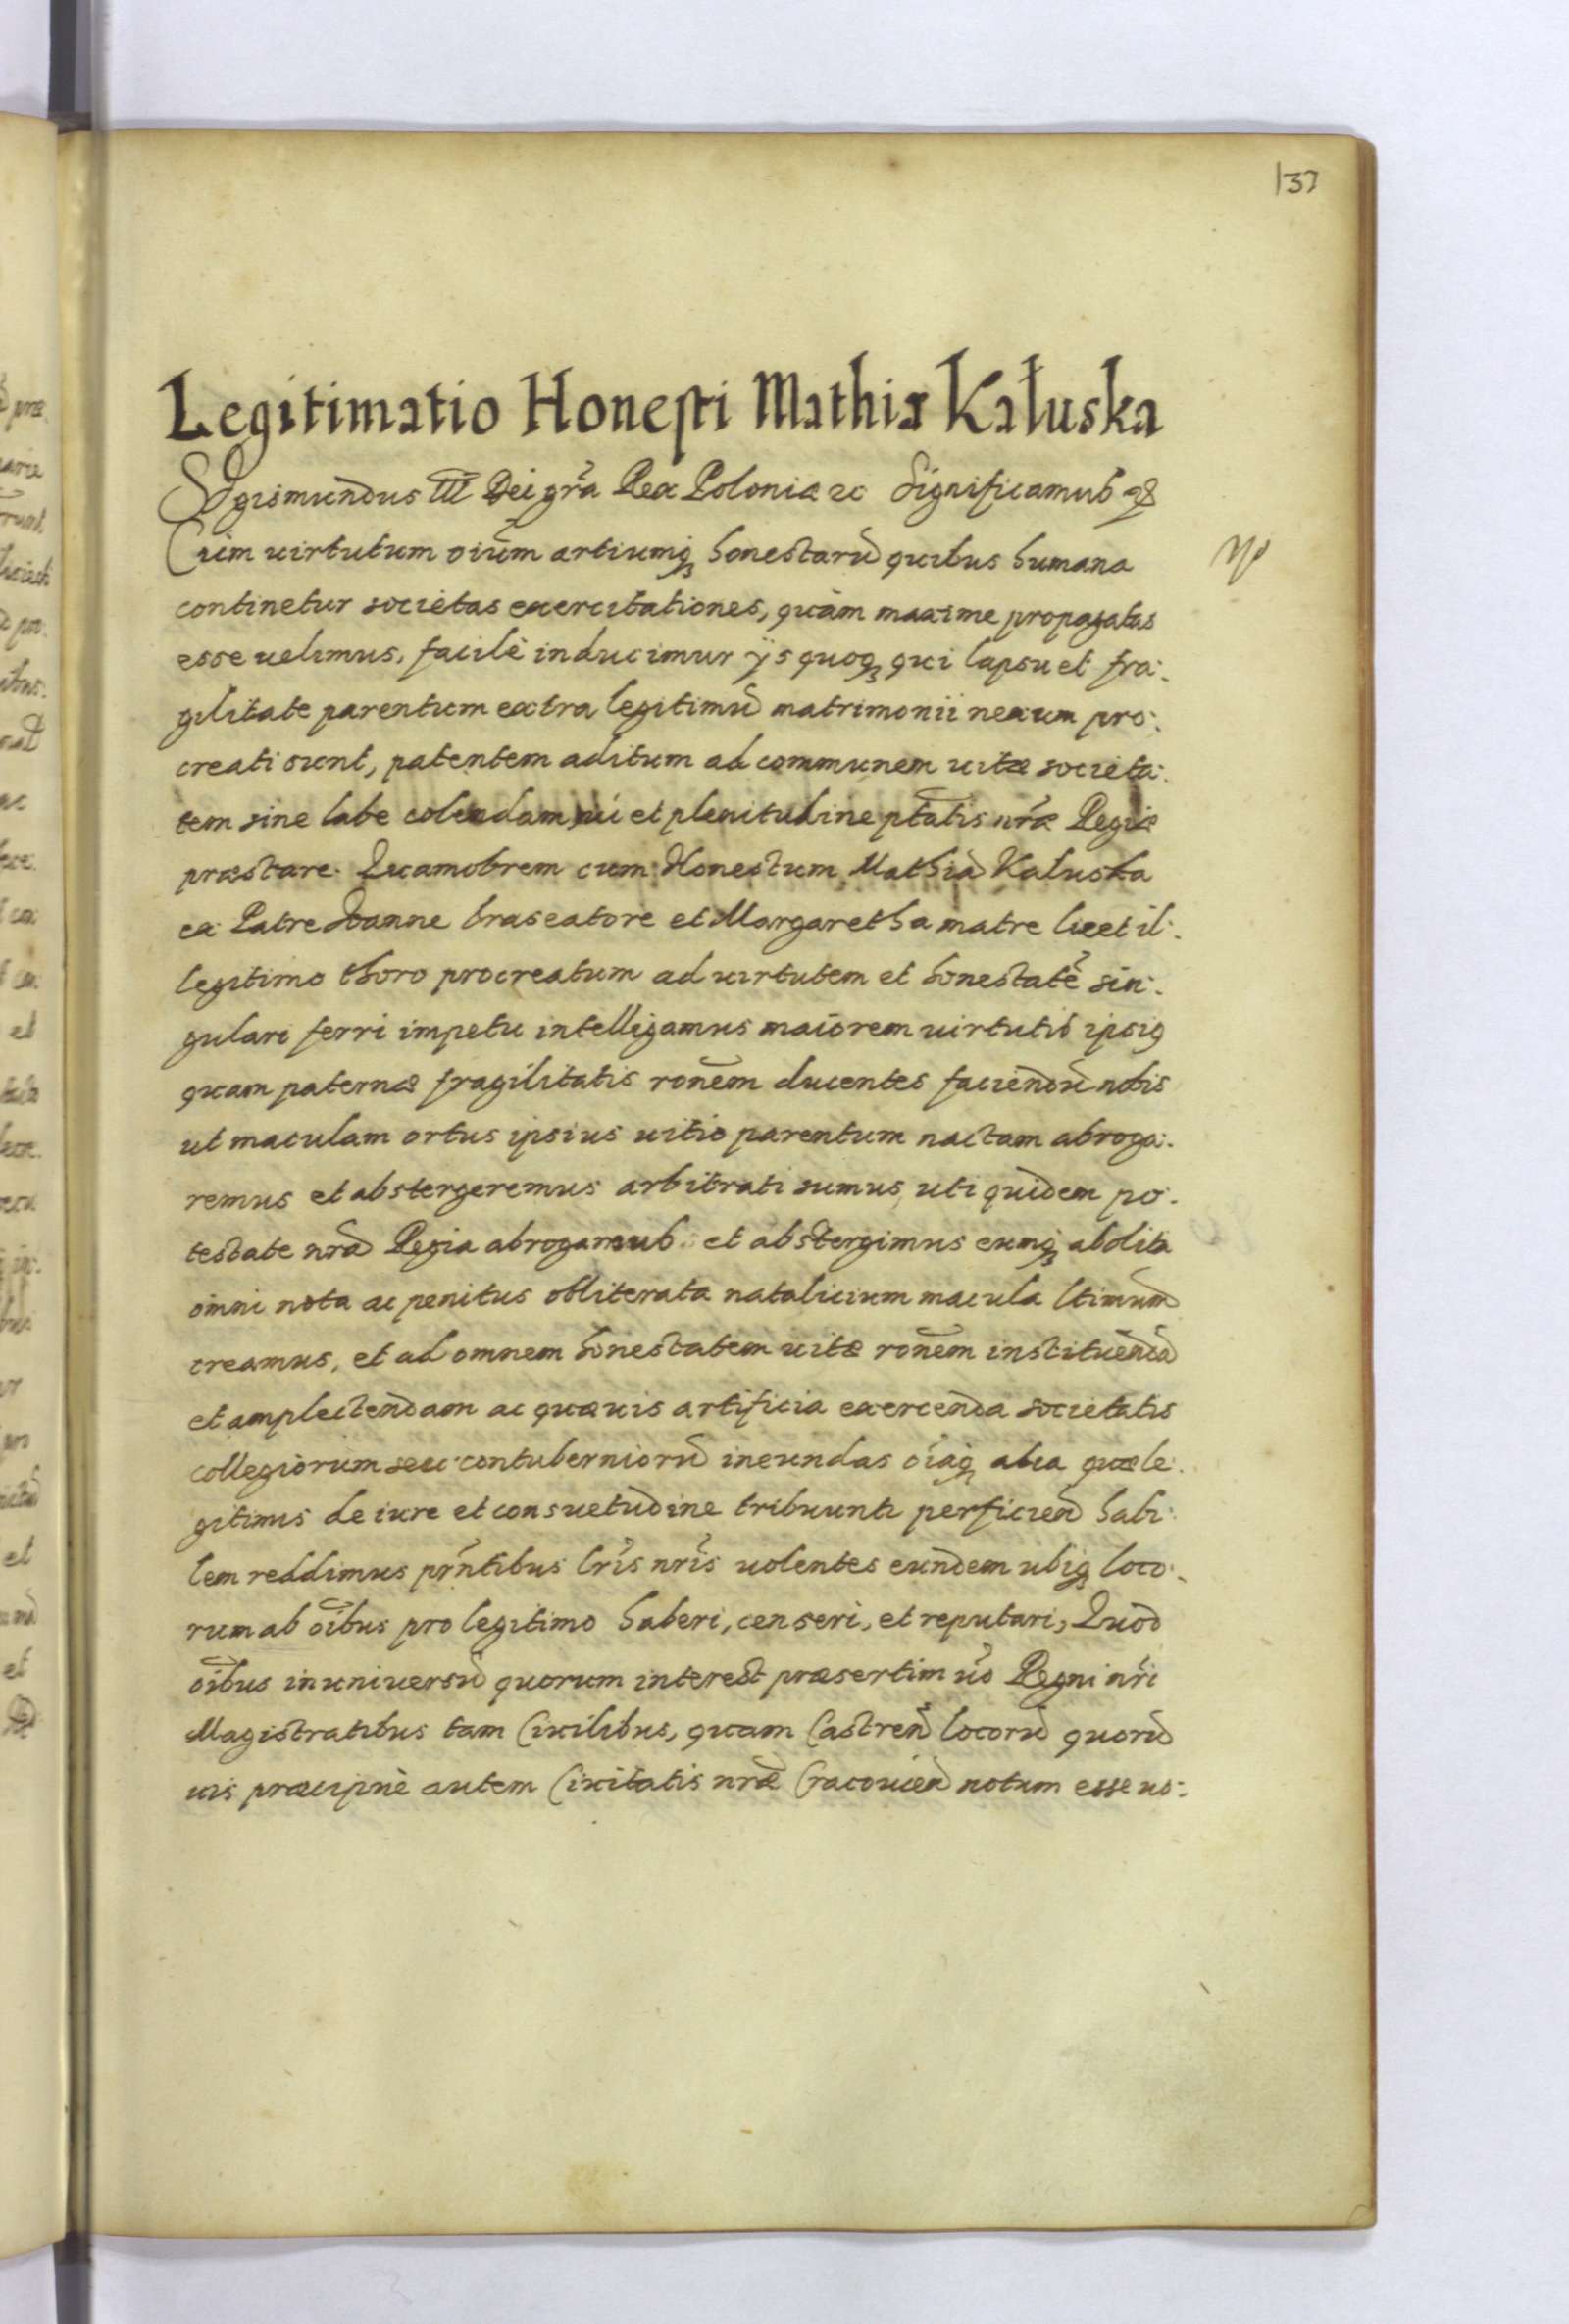 137
Legitimatio Honesti Mathiæ Kałuska
Sigismundus III Dei gr̃a Rex Poloniæ &c Significamus
Cum uirtutum oĩum artiumq̃ honestarũ quibus humana
continetur societas exercitationes, quàm maxime propagatas
esse uelimus, facilè inducimur ÿs quoq̃ qui lapsu et fra:
gilitate parentum extra legitimũ matrimonii nexum pro:
creati sunt, patentem aditum ad communem uitæ societa:
tem sine labe colendam et plenitudine ptãtis nr̃æ Regiæ
præstare. Quamobrem cum Honestum Mathiã Kaluska
ex Patre Joanne braseatore et Margaretha matre licet il:
legitimo thoro procreatum ad uirtutem et honestatẽ sin:
gulari ferri impetu intelligamus maiorem uirtutis ipsiq
quam paternæ fragilitatis ronẽm ducentes faciendũ nobis
ut maculam ortus ipsius uitio parentum nactam abroga:
remus et abstergeremus arbitrati sumus, uti quidem po:
testate nrã Regia abrogamus et abstergimus eumq̃ abolita
omni nota ac penitus obliterata natalicium macula ltimũm
creamus, et ad omnem honestatem uitæ ronẽm instituendã
et amplectendam ac quæuis artificia exercenda societatis
collegiorum seu contuberniorũ ineundas oĩaq̃ alia quæ le:
gitimis de iure et consuetudine tribuunt perficiend̃ habi:
lem reddimus pr̃ntibus lr̃is nr̃is uolentes eundem ubiq̃ loco:
rum ab oĩbus pro legitimo haberi, censeri, et reputari, Quod
oĩbus in uniuersũ quorum interest præsertim uo̊ Regni nr̃i
Magistratibus tam Ciuilibus, quam Castren̄ locorũ quorũ
uis præcipuè autem Ciuitatis nr̃æ Cracouien̄ notum esse uo: